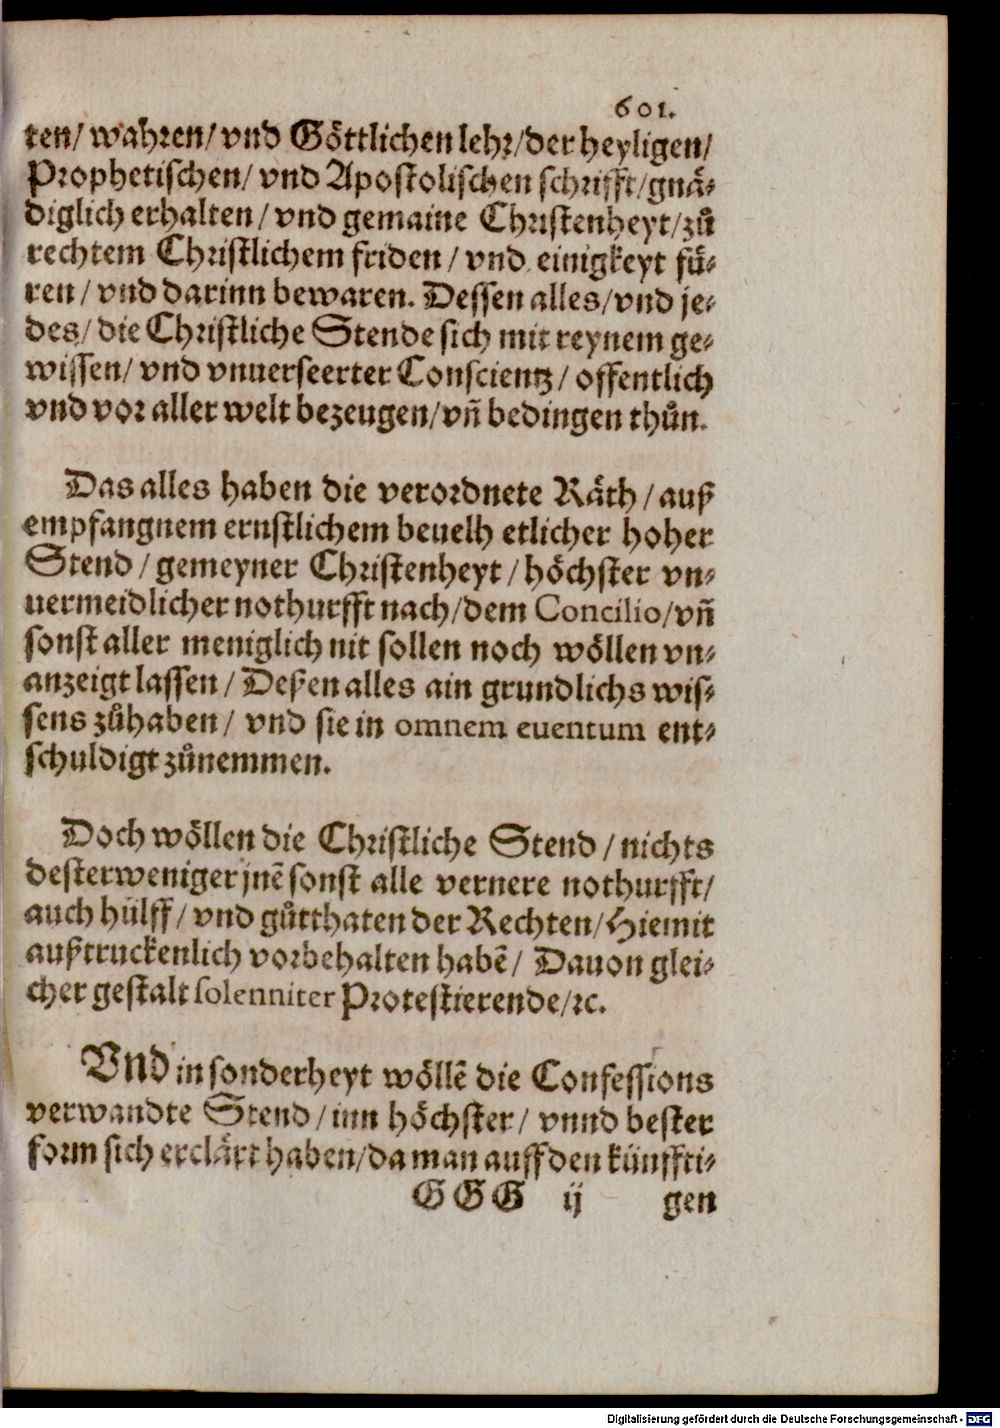 601.
ten/ wahren/ vnd Göttlichen lehr/ der heyligen/
Prophetischen/ vnd Apostolischen schrifft/ gnä⸗
diglich erhalten/ vnd gemaine Christenheyt/ zů
rechtem Christlichem friden/ vnd einigkeyt fü⸗
ren/ vnd darinn bewaren. Dessen alles/ vnd je⸗
des/ die Christliche Stende sich mit reynem ge⸗
wissen/ vnd vnuerseerter Conscientz/ offentlich
vnd vor aller welt bezeugen/ vñ bedingen thůn.
Das alles haben die verordnete Räth/ auß
empfangnem ernstlichem beuelh etlicher hoher
Stend/ gemeyner Christenheyt/ höchster vn⸗
uermeidlicher nothurfft nach/ dem Concilio/ vñ
sonst aller meniglich nit sollen noch wöllen vn⸗
anzeigt lassen/ Deßen alles ain grundlichs wis⸗
sens zůhaben/ vnd sie in omnem euentum ent⸗
schuldigt zůnemmen.
Doch wöllen die Christliche Stend/ nichts
desterweniger jnẽ sonst alle vernere nothurfft/
auch hülff/ vnd gůtthaten der Rechten/ Hiemit
außtruckenlich vorbehalten habẽ/ Dauon glei⸗
cher gestalt solenniter Protestierende/ ꝛc.
Vnd in sonderheyt wöllẽ die Confessions
verwandte Stend/ inn höchster/ vnnd bester
form sich erclärt haben/ da man auff den künffti⸗
GGG ij gen
Digitalisierung gefördert durch die Deutsche Forschungsgemeinschaft - DFG